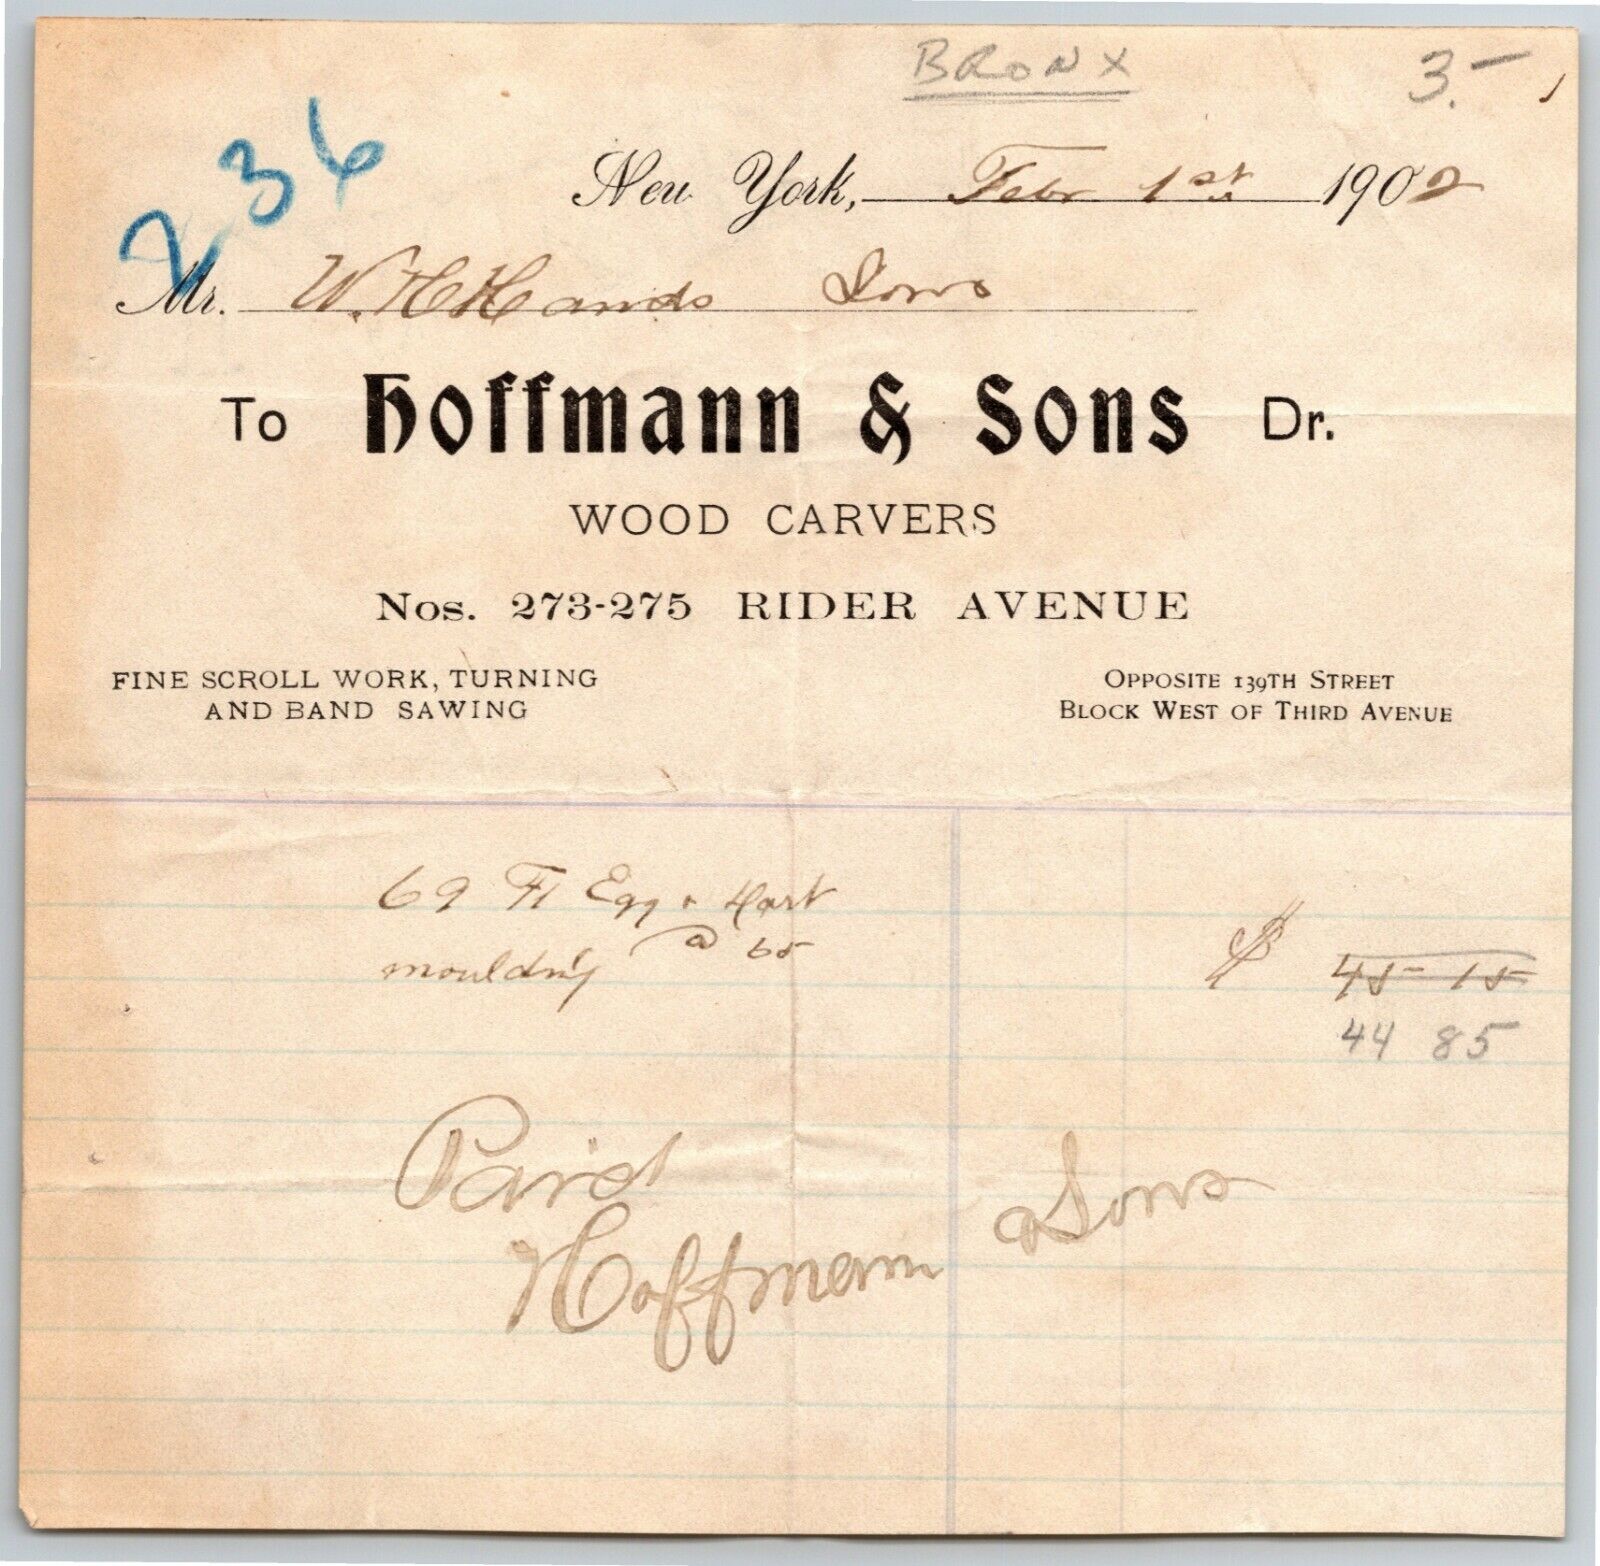 BRONX 3.-
236
New York, Febr 1st 1902
Mr. W. H Hands Sons
To Hoffmann & Sons Dr.
WOOD CARVERS
Nos. 273-275 RIDER AVENUE
FINE SCROLL WORK, TURNING
AND BAND SAWING
OPPOSITE 139TH STREET
BLOCK WEST OF THIRD AVENUE
69 Ft Egg & Dart
moulding @ 65 $ 45-15
44 85
Paid
Hoffmann & Sons